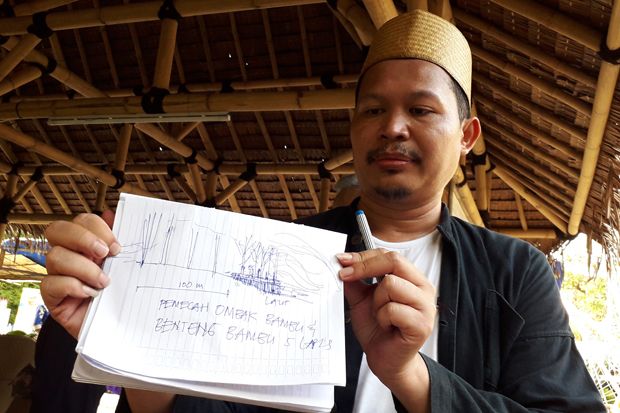 100 m
LAUT
PEMECAH OMBAK BAMBU &
BENTENG BAMBU 5 LAPIS